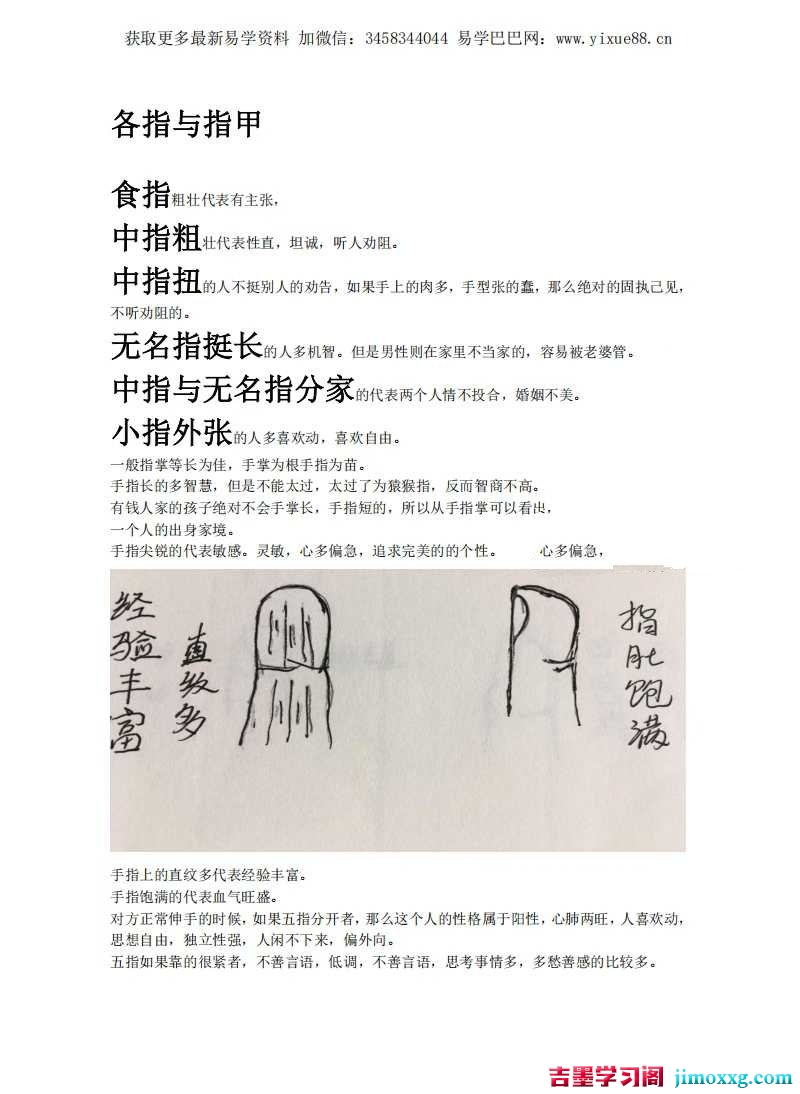 获取更多最新易学资料 加微信：3458344044 易学巴巴网：www.yixue88.cn
各指与指甲
食指粗壮代表有主张，
中指粗壮代表性直，坦诚，听人劝阻。
中指扭的人不挺别人的劝告，如果手上的肉多，手型张的蠢，那么绝对的固执己见，
不听劝阻的。
无名指挺长的人多机智。但是男性则在家里不当家的，容易被老婆管。
中指与无名指分家的代表两个人情不投合，婚姻不美。
小指外张的人多喜欢动，喜欢自由。
一般指掌等长为佳，手掌为根手指为苗。
手指长的多智慧，但是不能太过，太过了为猿猴指，反而智商不高。
有钱人家的孩子绝对不会手掌长，手指短的，所以从手指掌可以看出，
一个人的出身家境。
手指尖锐的代表敏感。灵敏，心多偏急，追求完美的的个性。 心多偏急，
经验丰富
直纹多
指肚饱满
手指上的直纹多代表经验丰富。
手指饱满的代表血气旺盛。
对方正常伸手的时候，如果五指分开者，那么这个人的性格属于阳性，心肺两旺，人喜欢动，
思想自由，独立性强，人闲不下来，偏外向。
五指如果靠的很紧者，不善言语，低调，不善言语，思考事情多，多愁善感的比较多。
吉墨学习阁 jimoxxg.com